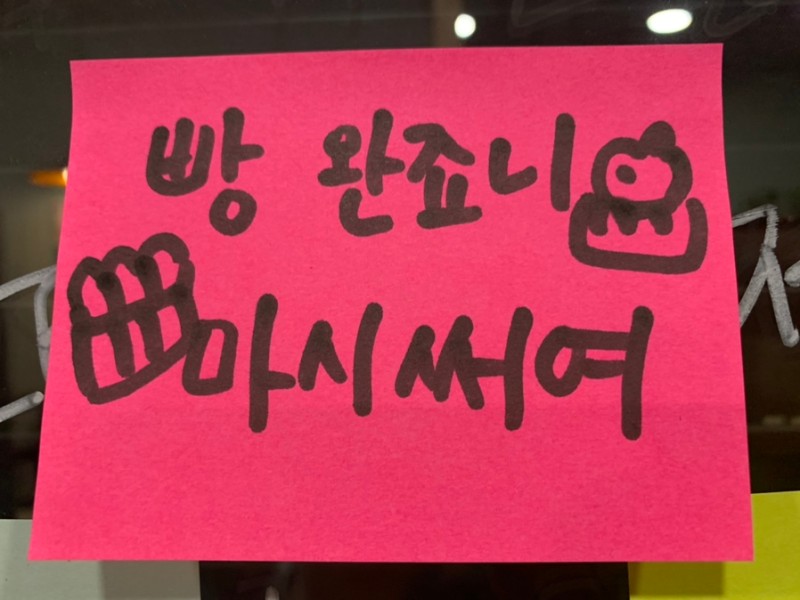 빵 완죠니
마시써여